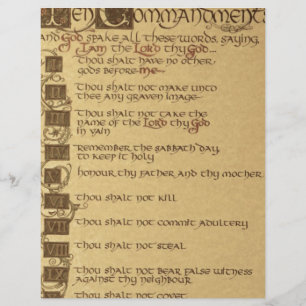 Ten Commandments
and God spake all these words, saying,
I am the Lord thy God...
I Thou shalt have no other
gods before me
II Thou shalt not make unto
thee any graven image
III Thou shalt not take the
name of the Lord thy God
in vain
IV Remember the sabbath day
to keep it holy
V honour thy father and thy mother
VI Thou shalt not kill
VII Thou shalt not commit adultery
VIII Thou shalt not steal
IX Thou shalt not bear false witness
against thy neighbour
Thou shalt not covet